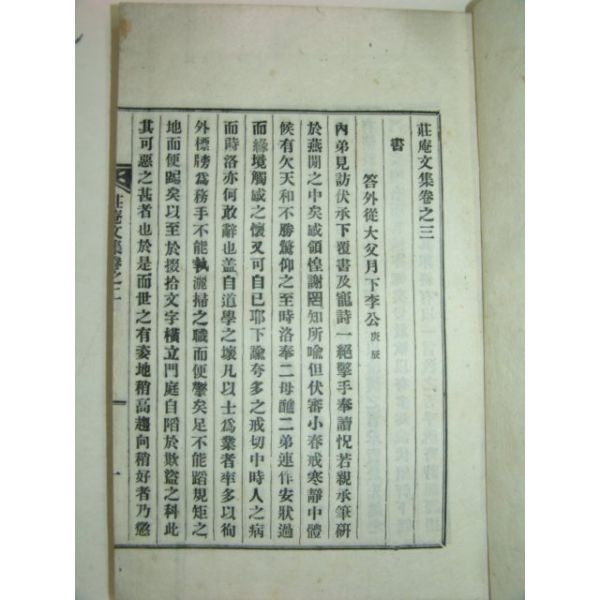 莊庵文集卷之三
書
答外從大父月下李公庚辰
內弟見訪伏承下覆書及寵詩一絕擎手奉讀怳若親承筆硏
於燕閒之中矣感領惶謝罔知所喩但伏審小春戒寒靜中體
候有欠天和不勝驚仰之至時洛奉二母醮二弟連作安狀過
而緣境觸感之懷又可自已耶下諭夸多之戒切中時人之病
而蒔洛亦何敢辭也盖自道學之壞凡以士爲業者率多以徇
外標勝爲務手不能執灑掃之職而便擎矣足不能蹈規矩之
地而便躅矣以至於掇拾文字橫立門庭自陷於欺盜之科此
其可惡之甚者也於是而世之有姿地稍高趨向稍好者乃懲
莊庵文集卷之
一